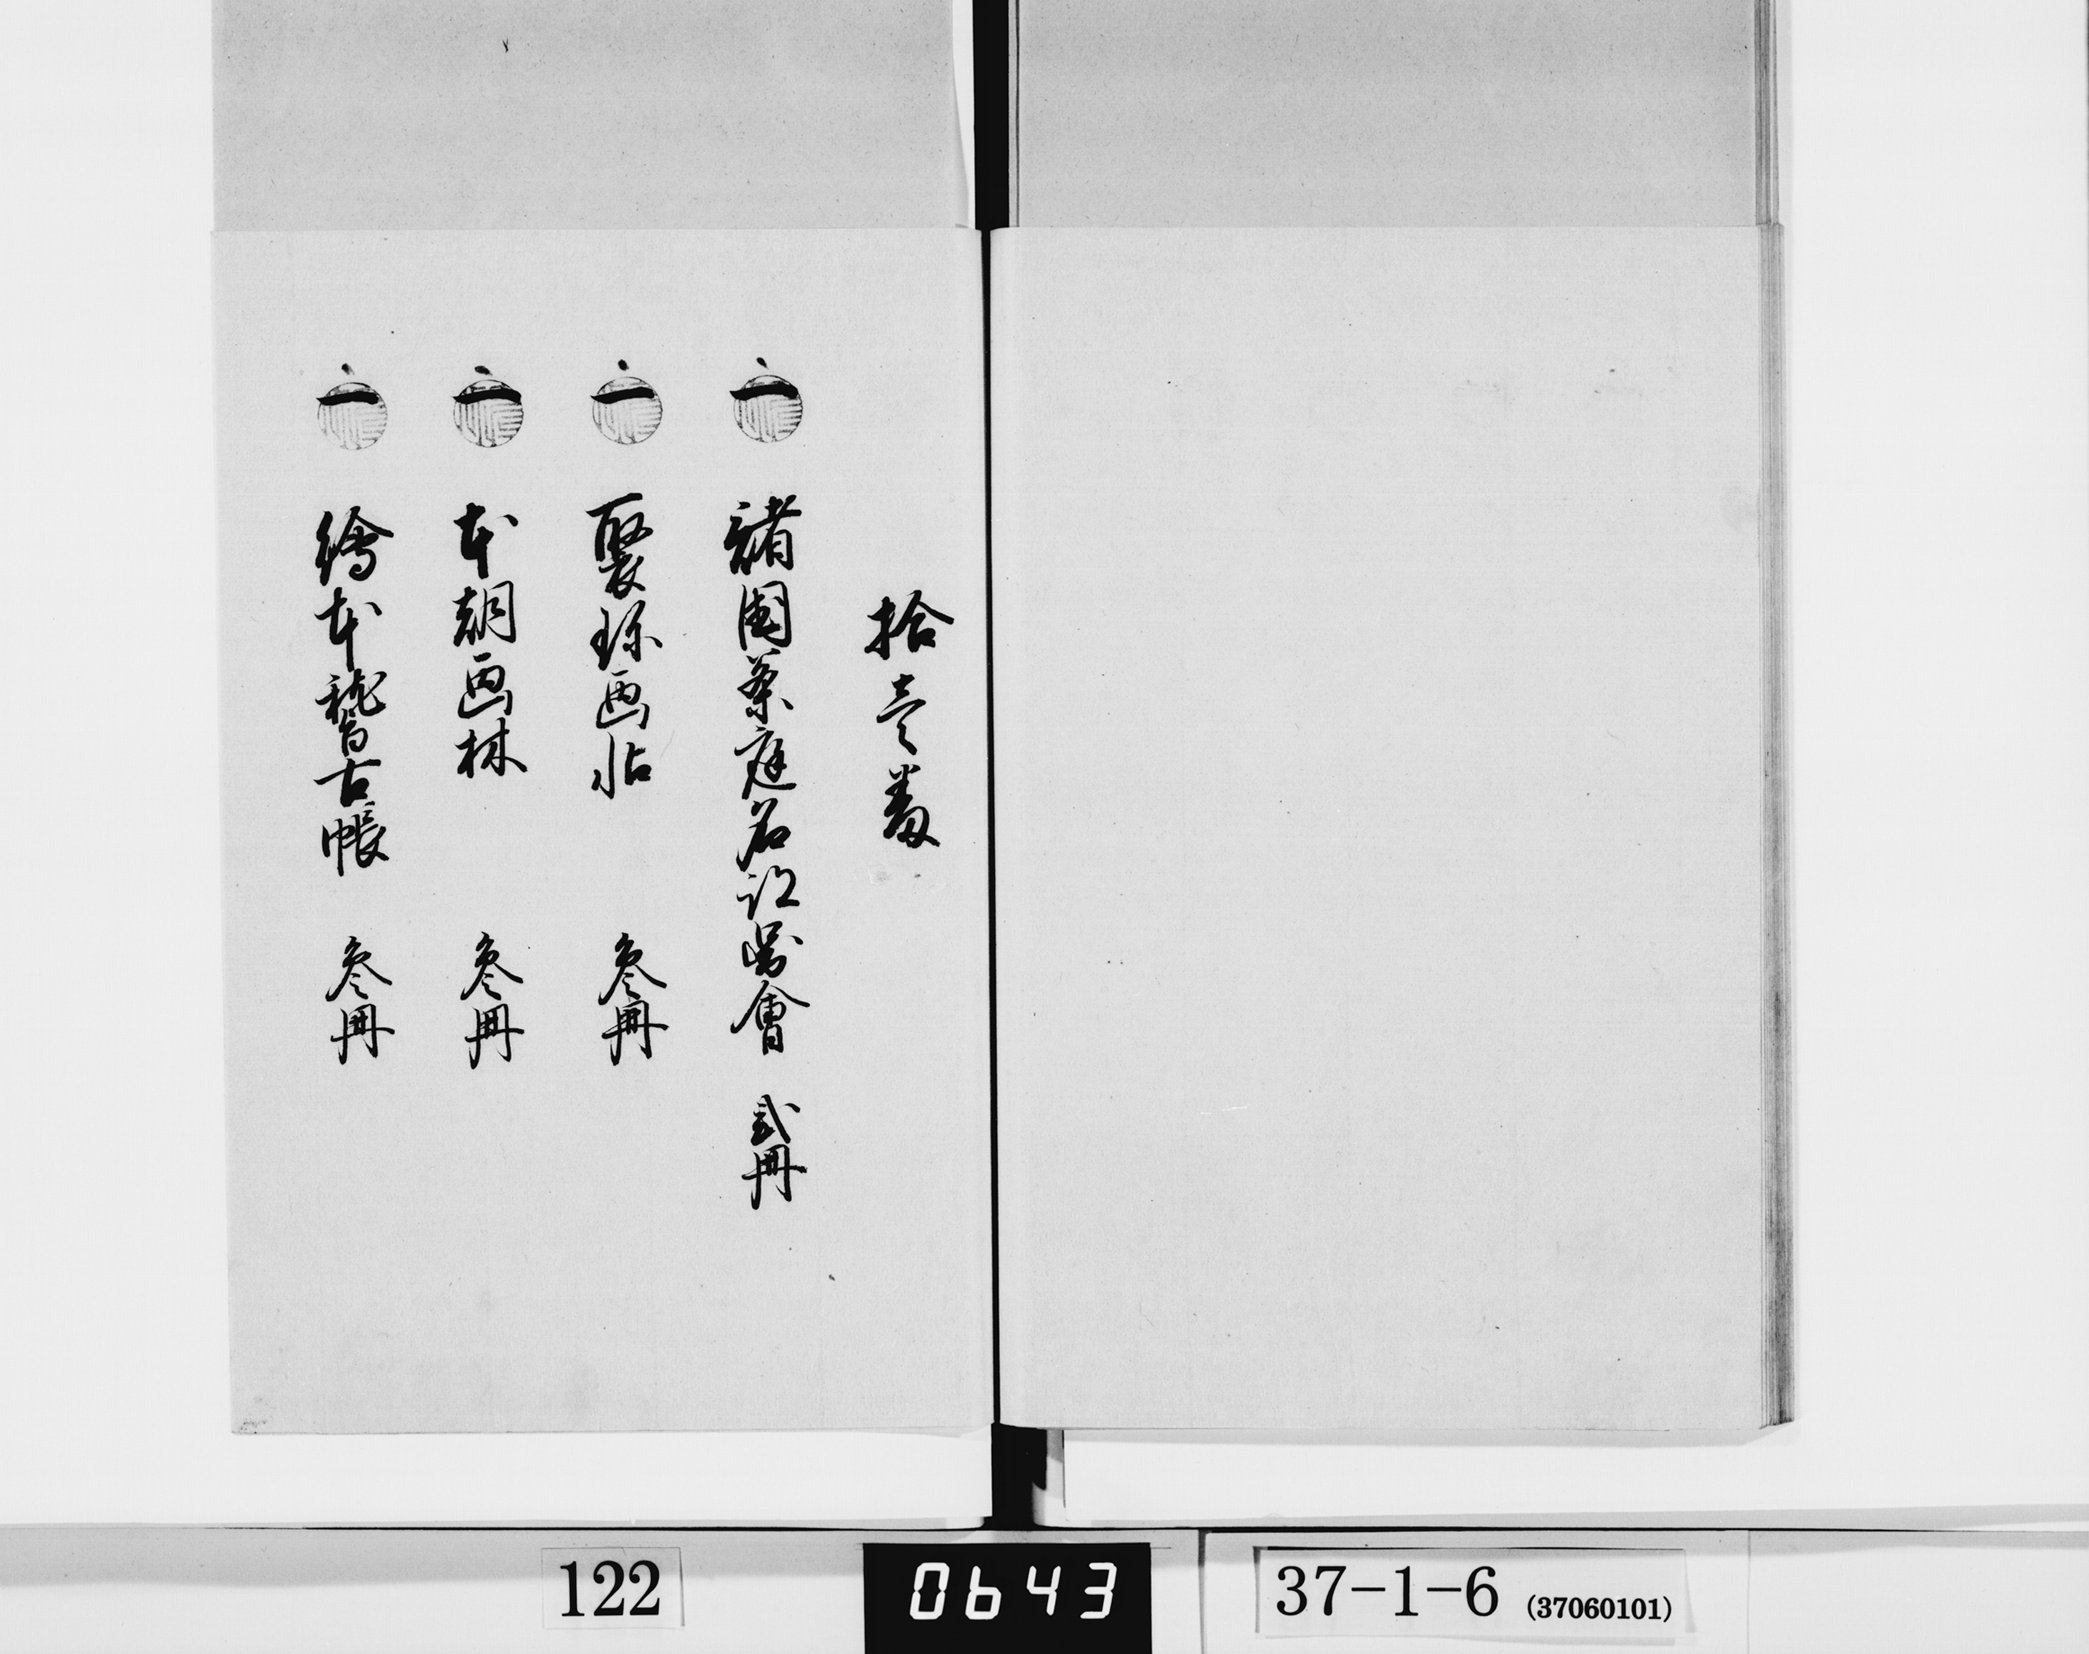 拾壱番
一 諸国茶庭名跡図會 貳冊
一 聚珍画帖 叁冊
一 本朝画林 叁冊
一 繪本稽古帳 叁冊
122
0643
37-1-6 (37060101)